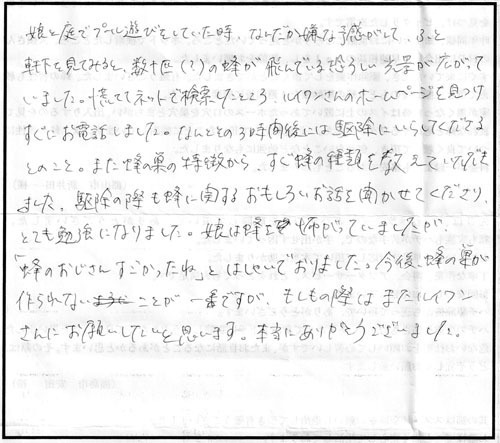 娘と庭でプール遊びをしていた時、なんだか嫌な予感がして、ふと
軒下を見てみると、数十匹(?)の蜂が飛んでいる恐ろしい光景が広がって
いました。慌ててネットで検索したところ、ルイワンさんのホームページを見つけ
すぐにお電話しました。なんとその3時間後には駆除にいらしてくださる
とのこと。また蜂の巣の特徴から、すぐ蜂の種類を教えていただき
ました。駆除の際も蜂に関するおもしろいお話を聞かせてくださり、
とても勉強になりました。娘は蜂を怖がっていましたが、
「蜂のおじさんすごかったね」とはしゃいでおりました。今後、蜂の巣が
作られないことが一番ですが、もしもの際はまたルイワン
さんにお願いしたいと思います。本当にありがとうございました。